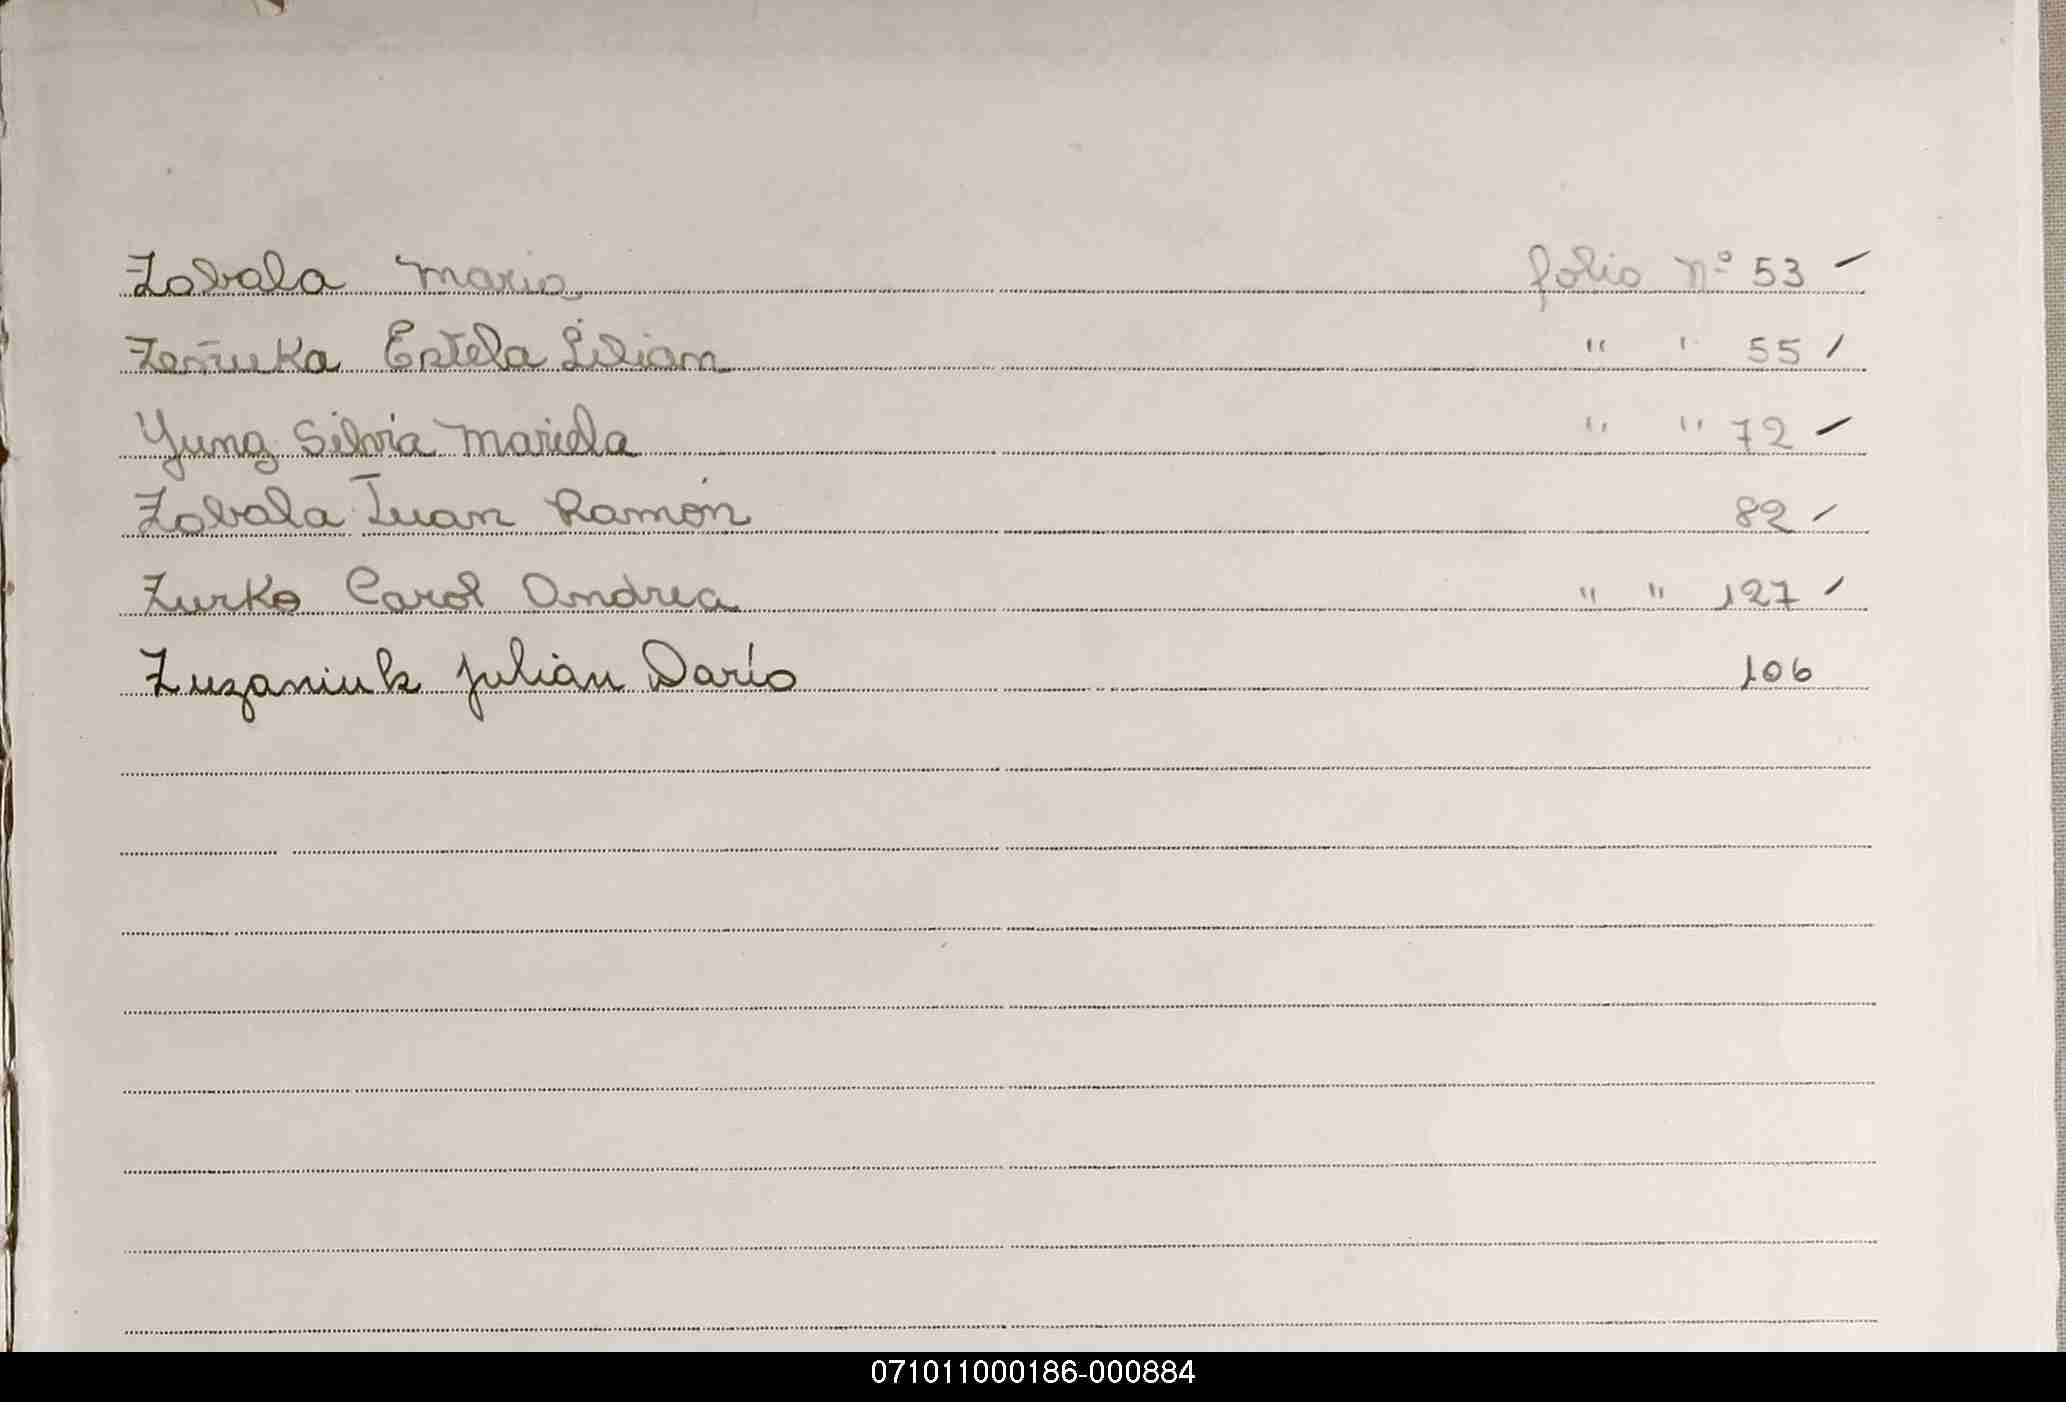 Zabala Maria folio Nº 53
Zeñuka Estela Lilian " " 55
Yung Silvia Mariela " " 72
Zabala Juan Ramón 82
Zurko Carol Andrea " " 127
Zuzaniuk Julián Darío 106
071011000186-000884